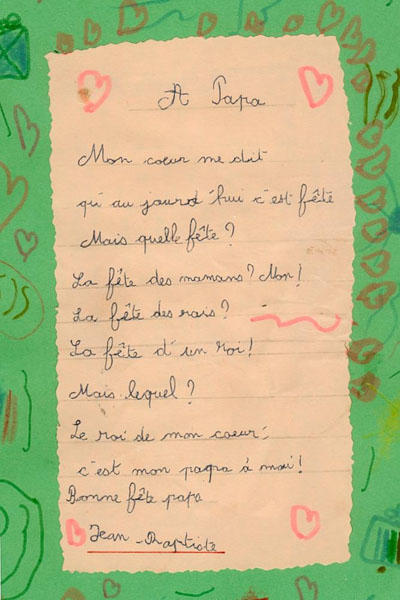 A Papa
Mon coeur me dit
qu'au jourd'hui c'est fête
Mais quelle fête ?
La fête des mamans ? Non !
La fête des rois ?
La fête d'un roi !
Mais lequel ?
Le roi de mon coeur,
c'est mon papa à moi !
Bonne fête papa
Jean-Baptiste